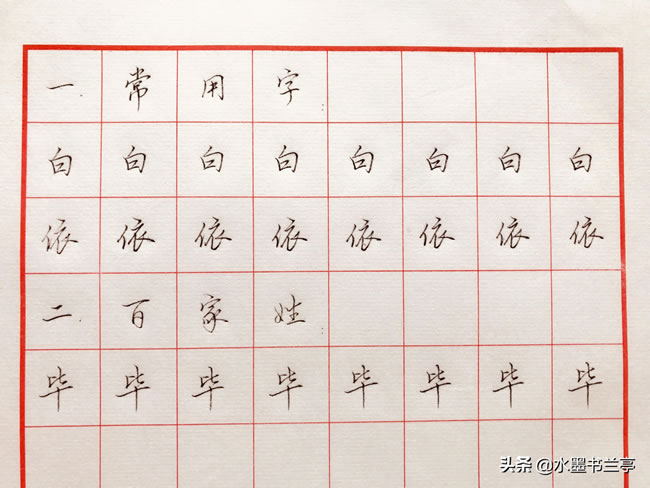 一.常用字
白白白白白白白白
依依依依依依依依
二.百家姓
毕毕毕毕毕毕毕毕
头条 @水墨书兰亭